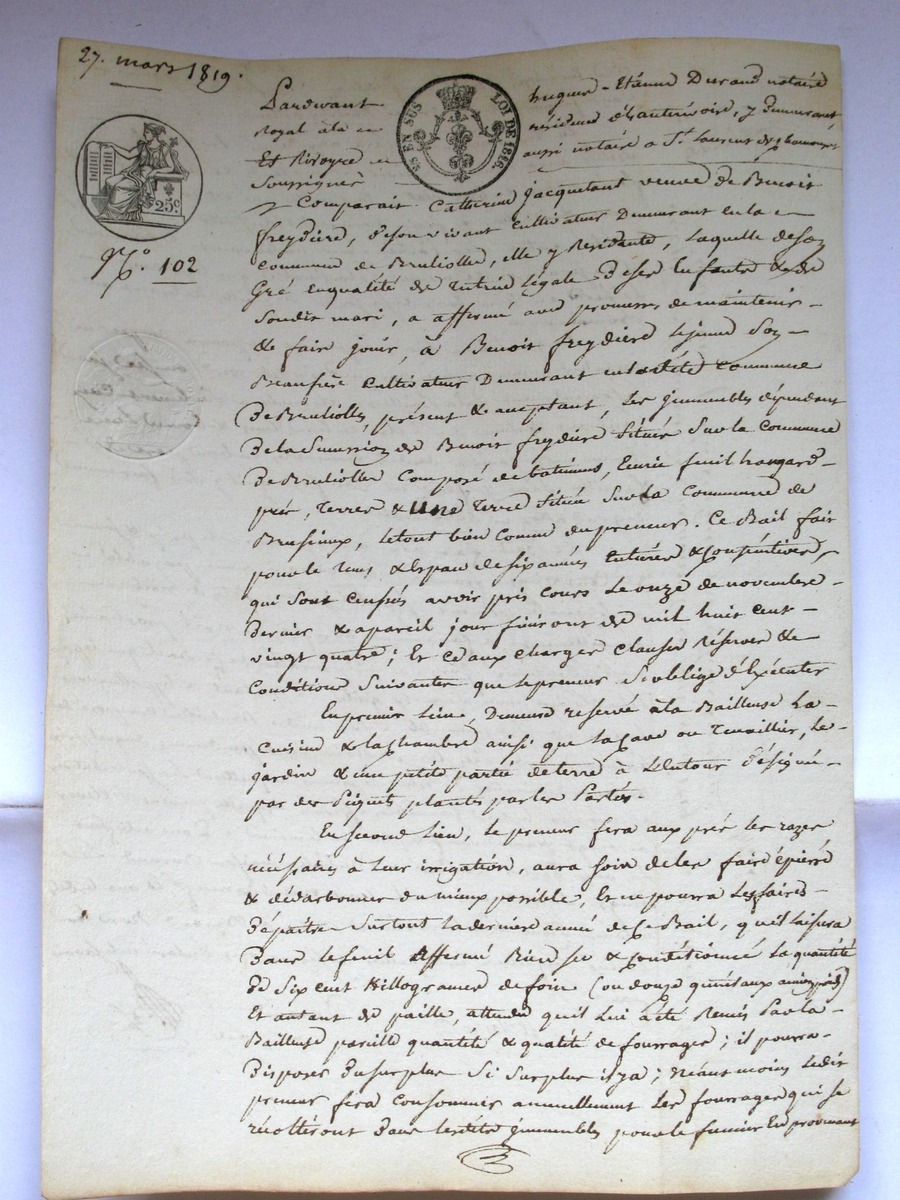 27. mars 1819.
Pardevant hugues-Etienne Durand notaire
royal à la résidence d'hauterivoire, y demeurant,
Et Rivoyre aussi notaire a St. Laurent de chamousset
Soussignés
25 EN SUS LOI DE 1816.
25c
No. 102
Comparait Catherine Jacquetant veuve de Benoit
freydiere, de son vivant Cultivateur Demeurant en la
commune de Brulioller, elle y Residante, laquelle de son
Gré en qualité de tutrice légale de ses Enfants & de
Sondit mari, a affermé avec promesse de maintenir
& faire jouir, à Benoit freydiere le jeune Son
Beaufrere Cultivateur Demeurant en ladite Commune
De Brulioller, présent & acceptant, Les Immeubles dépendant
De la Succession de Benoit freydiere Situés Sur la Commune
De Brulioller Composé de batimens, Ecurie fenil hangard
prés, terres & une Terre Située Sur la Commune de
Brusieux, le tout bien connu du preneur. Ce Bail fait
pour le tems & Espace de six années Entieres & Consécutives,
qui Sont censées avoir pris cours Le onze de novembre
dernier & a pareil jour finiront de mil huit cent
vingt quatre; Et ce aux charges clauses Réserves &
Conditions Suivantes que le preneur S'oblige d'Exécuter
En premier Lieu, Demeure reservé à la Bailleuse La
cuisine & la chambre ainsi que la cave ou Cuvillier, Le
jardin & une petite partie de terre à L'Entour désigné
par des Piquets plantés par les Parties.
En Second Lieu, le preneur fera aux prés les razes
nécéssaires à leur irrigation, aura soin de les faire épierré
& dédarbonner du mieux possible, Et ne pourra Les faires
dépaitre Surtout la derniere année de ce Bail, qu'il laissera
Dans le fenil affermé Bien sec & Conditionné La quantité
De Six cent Killogrames de foin (ou douze quintaux ancien poids)
Et autant de paille, attendu qu'il Lui a été Remis Par la
Bailleuse pareille quantité & qualité de fourrages; il pourra
disposer du surplus Si surplus il y a; néant moins Ledit
preneur fera Consommer annuellement Les fourrages qui se
récolteront Dans lesdits Immeubles pour le fumier En provenant